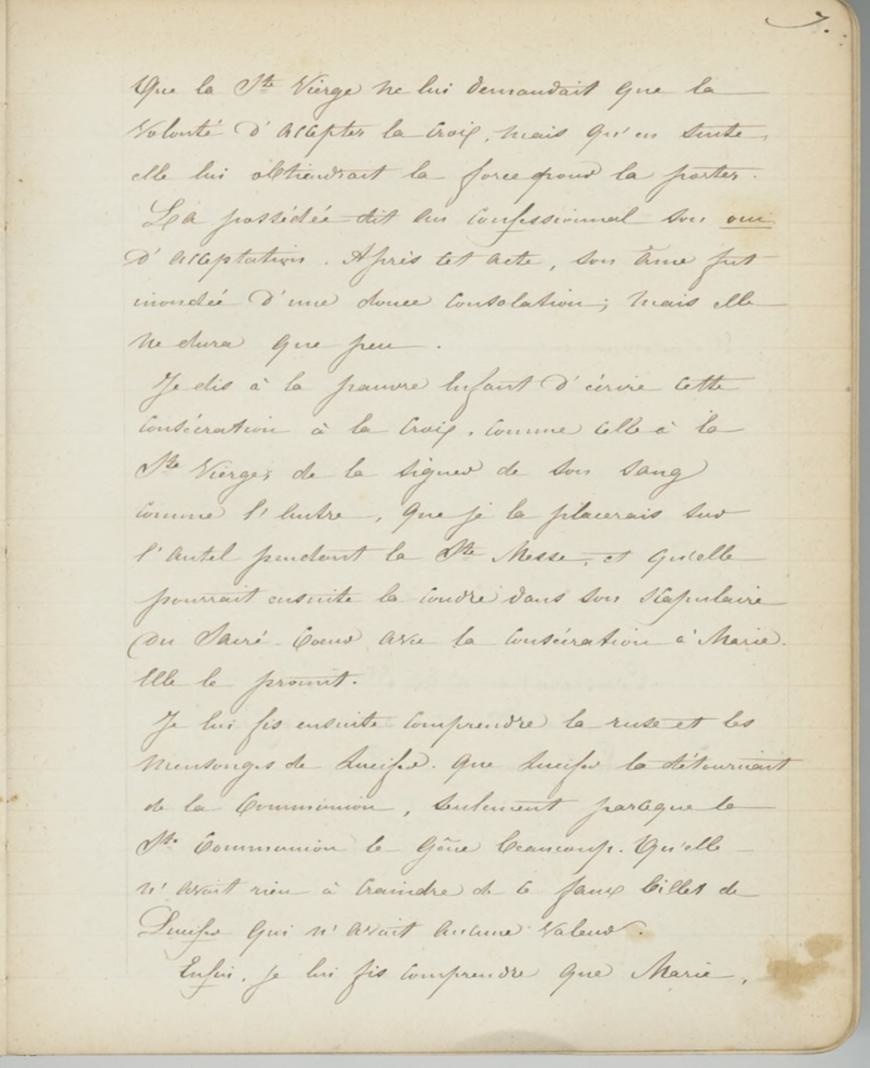 7.
Que la Ste Vierge ne lui demandait que la
volonté d'accepter la croix, mais qu'en suite,
elle lui obtiendrait la force pour la porter.
La possédée dit au confessionnal son oui
d'acceptation. Après cet acte, son âme fut
inondée d'une douce consolation; mais elle
ne dura que peu.
Je dis à la pauvre Enfant d'écrire cette
consécration à la croix, comme celle à la
Ste Vierge, de la signer de son sang
comme l'autre, que je la placerais sur
l'autel pendant la Ste Messe, et qu'elle
pourrait ensuite la coudre dans son scapulaire
du Sacré-Coeur avec la consécration à Marie.
Elle le promit.
Je lui fis ensuite comprendre la ruse et les
mensonges de Lucifer. Que Lucifer la détournait
de la Communion, seulement parceque la
Ste Communion le gêne beaucoup. Qu'elle
n'avait rien à craindre de ce faux billet de
Lucifer qui n'avait aucune valeur.
Enfin, je lui fis comprendre que Marie,